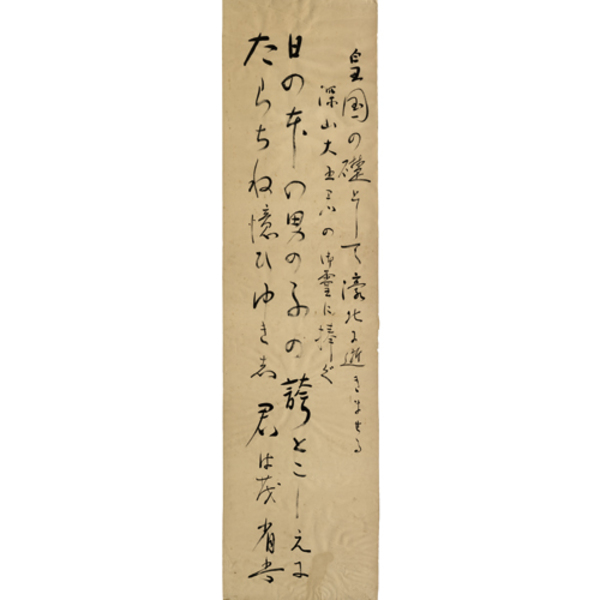 皇国の礎として濠北に逝きませる
深山大の御霊に捧ぐ
日の本の男の子の誇とこしえに
たらちね憶ひゆきし君は茂